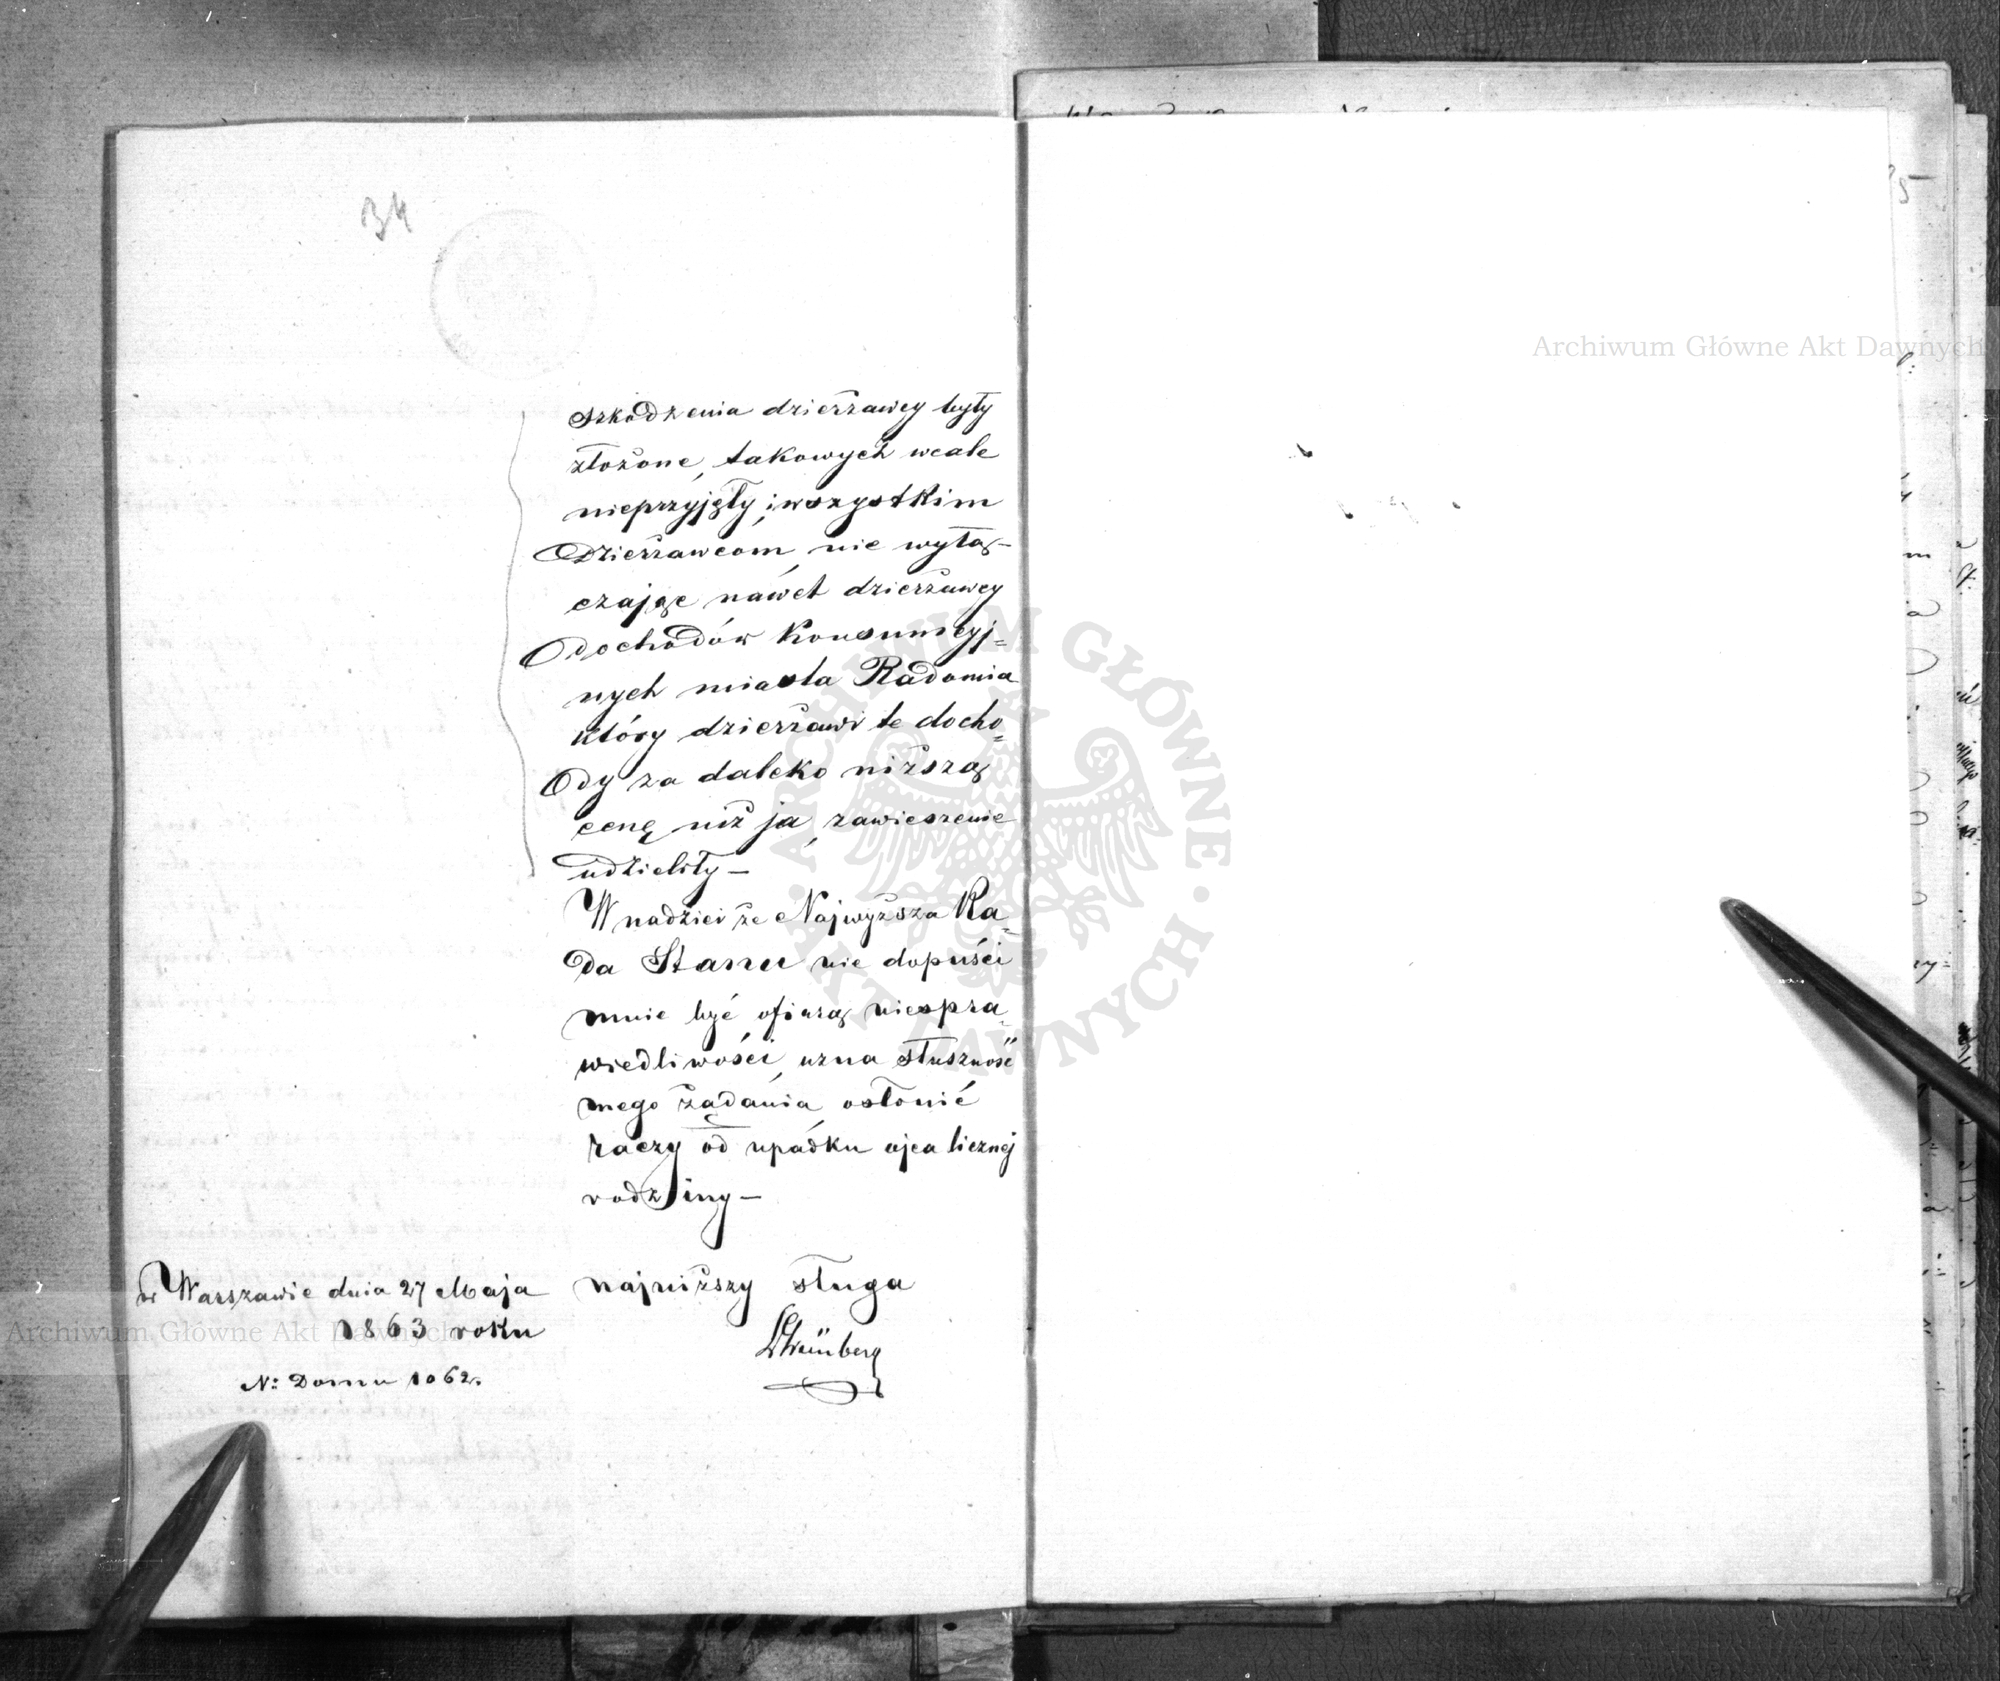 34
szkodzenia dzierżawcy były
złożone, takowych wcale
nieprzyjęły, i wszystkim
Dzierżawcom, nie wyłą-
czając nawet dzierżawcy
dochodów Konsumcyj=
nych miasta Radomia
który dzierżawi te docho=
dy za daleko niższą
cenę niż ja, zawieszenie
udzieliły —
W nadziei że Najwyższa Ra=
da Stanu nie dopuści
mnie być ofiarą niespra=
wiedliwości, uzna słuszność
mego żądania, osłonić
raczy od upadku ojca licznej
rodziny —
najniższy sługa
w Warszawie dnia 27 Maja
1863 roku
N: Domu 1062.
Archiwum Główne Akt Dawnych
Archiwum Główne Akt Dawnych
ARCHIWUM GŁÓWNE · AKT DAWNYCH ·